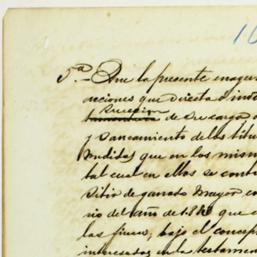 10
5ª.- Que la presente enagen
acciones que directa ó inde
Sucesion
de su cargo
y saneamiento de los titu
endidas que en los mism
tal cual en ellos se conti
sitio de ganado mayor co
no del año de 18 que
las fincas, bajo el concep
interesados en la testamen